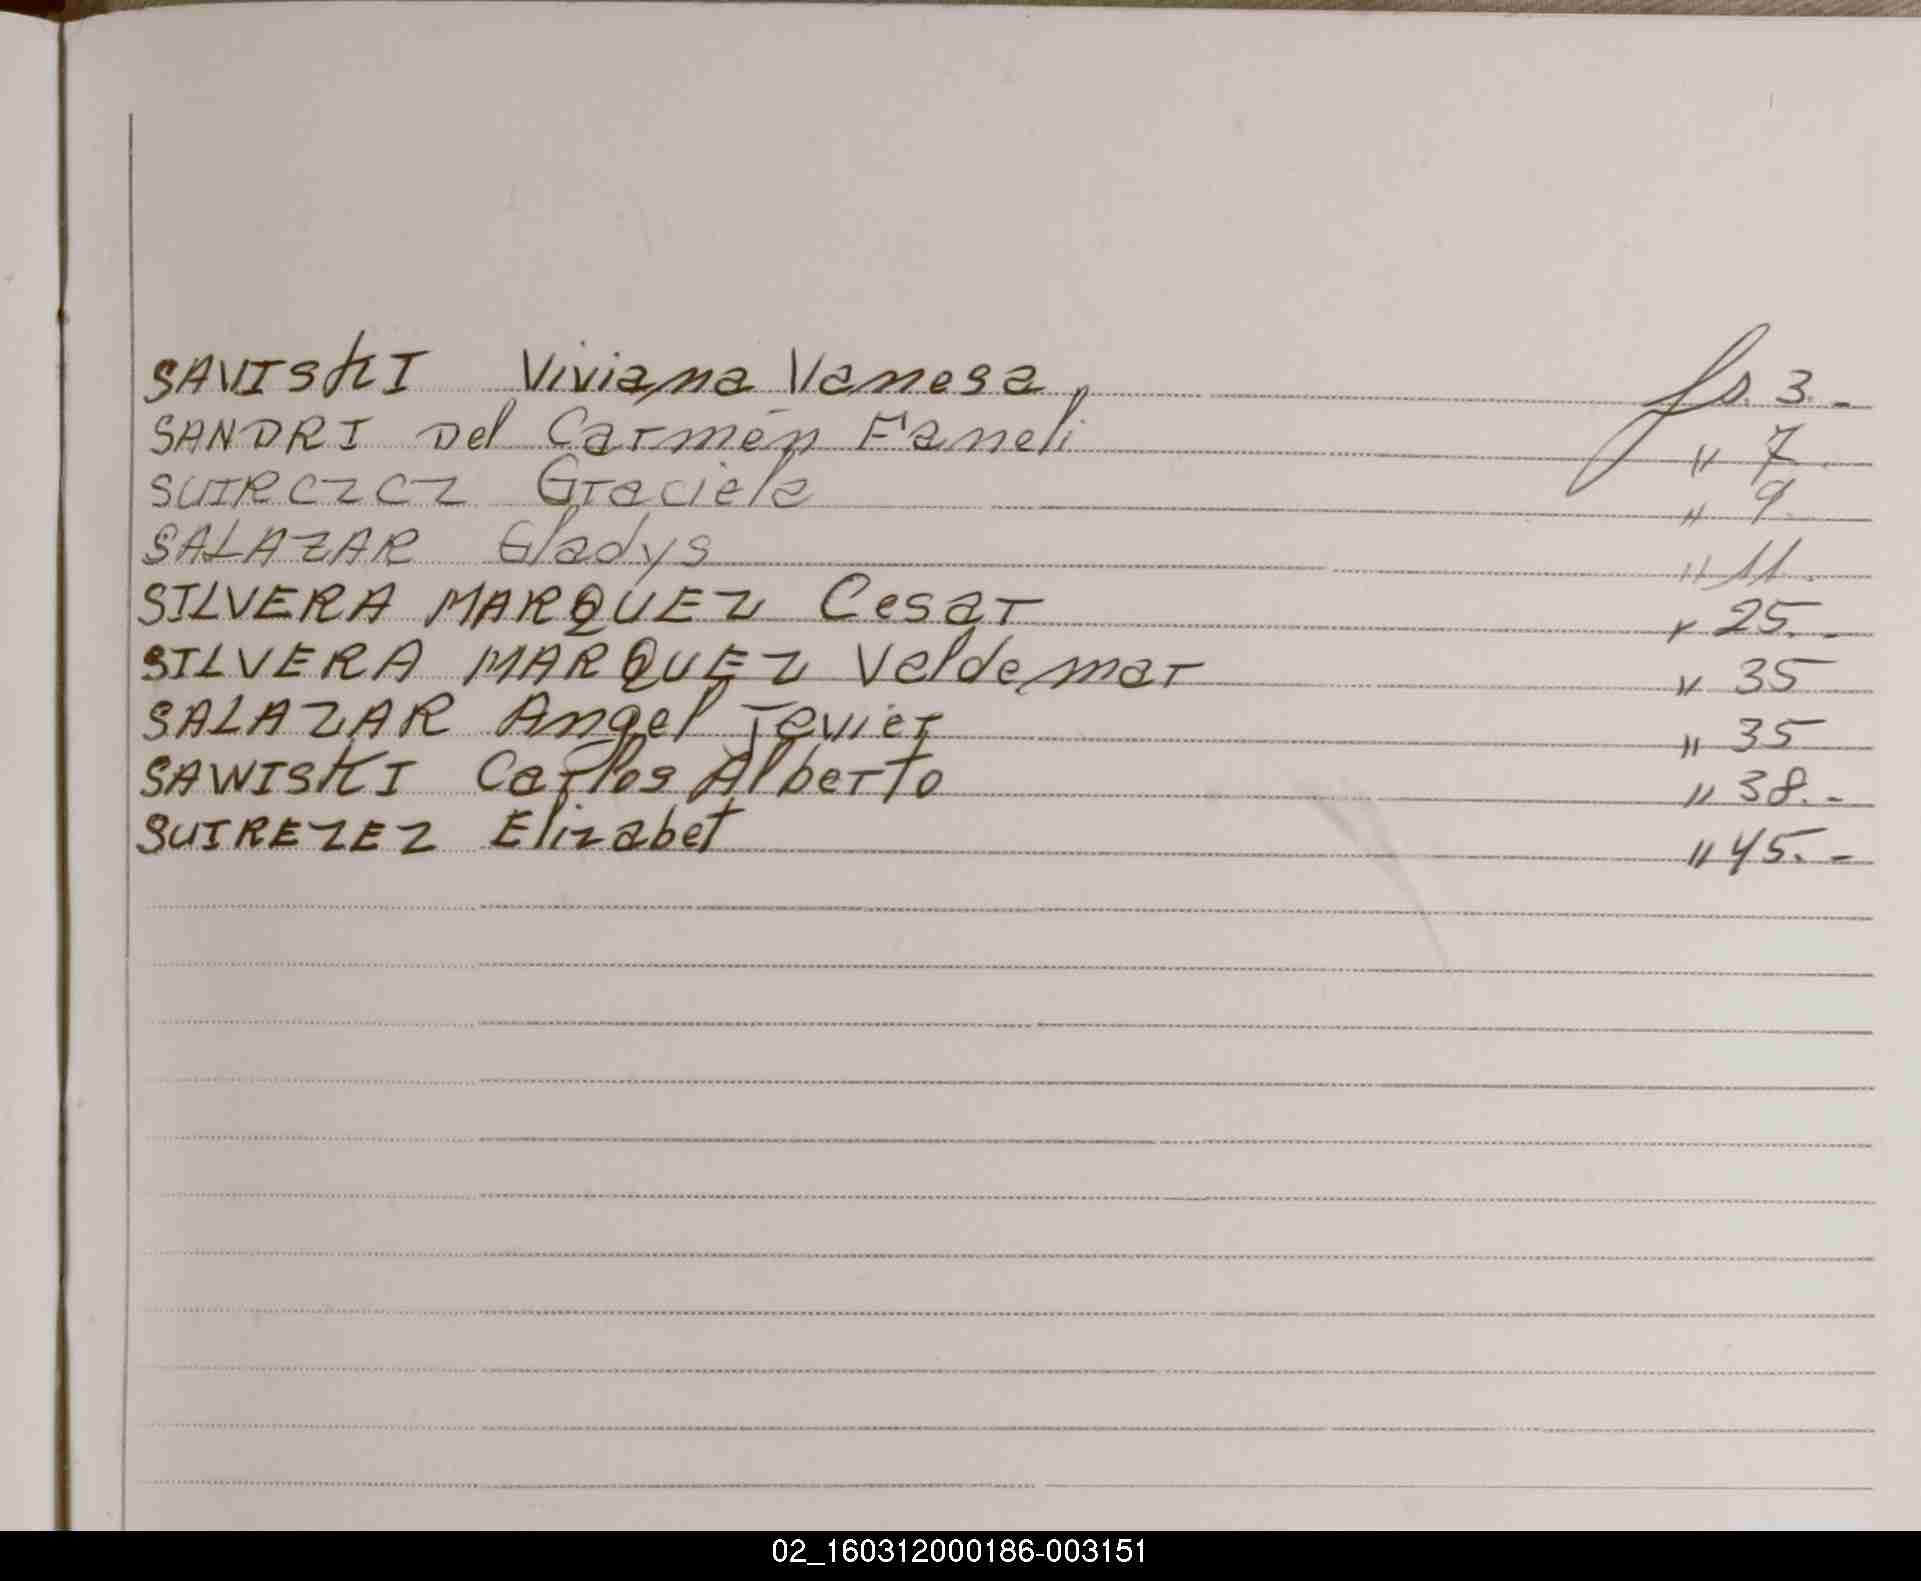 SAVISKI Viviana Vanesa, fs. 3.-
SANDRI Del Carmen Faneli " 7
SUIRCZCZ Graciela " 9
SALAZAR Gladys " 11.
SILVERA MARQUEZ Cesar " 25.-
SILVERA MARQUEZ Valdemar " 35
SALAZAR Angel Javier " 35
SAWISKI Carlos Alberto " 38.-
SUIREZEZ Elizabet " 45.-
02_160312000186-003151